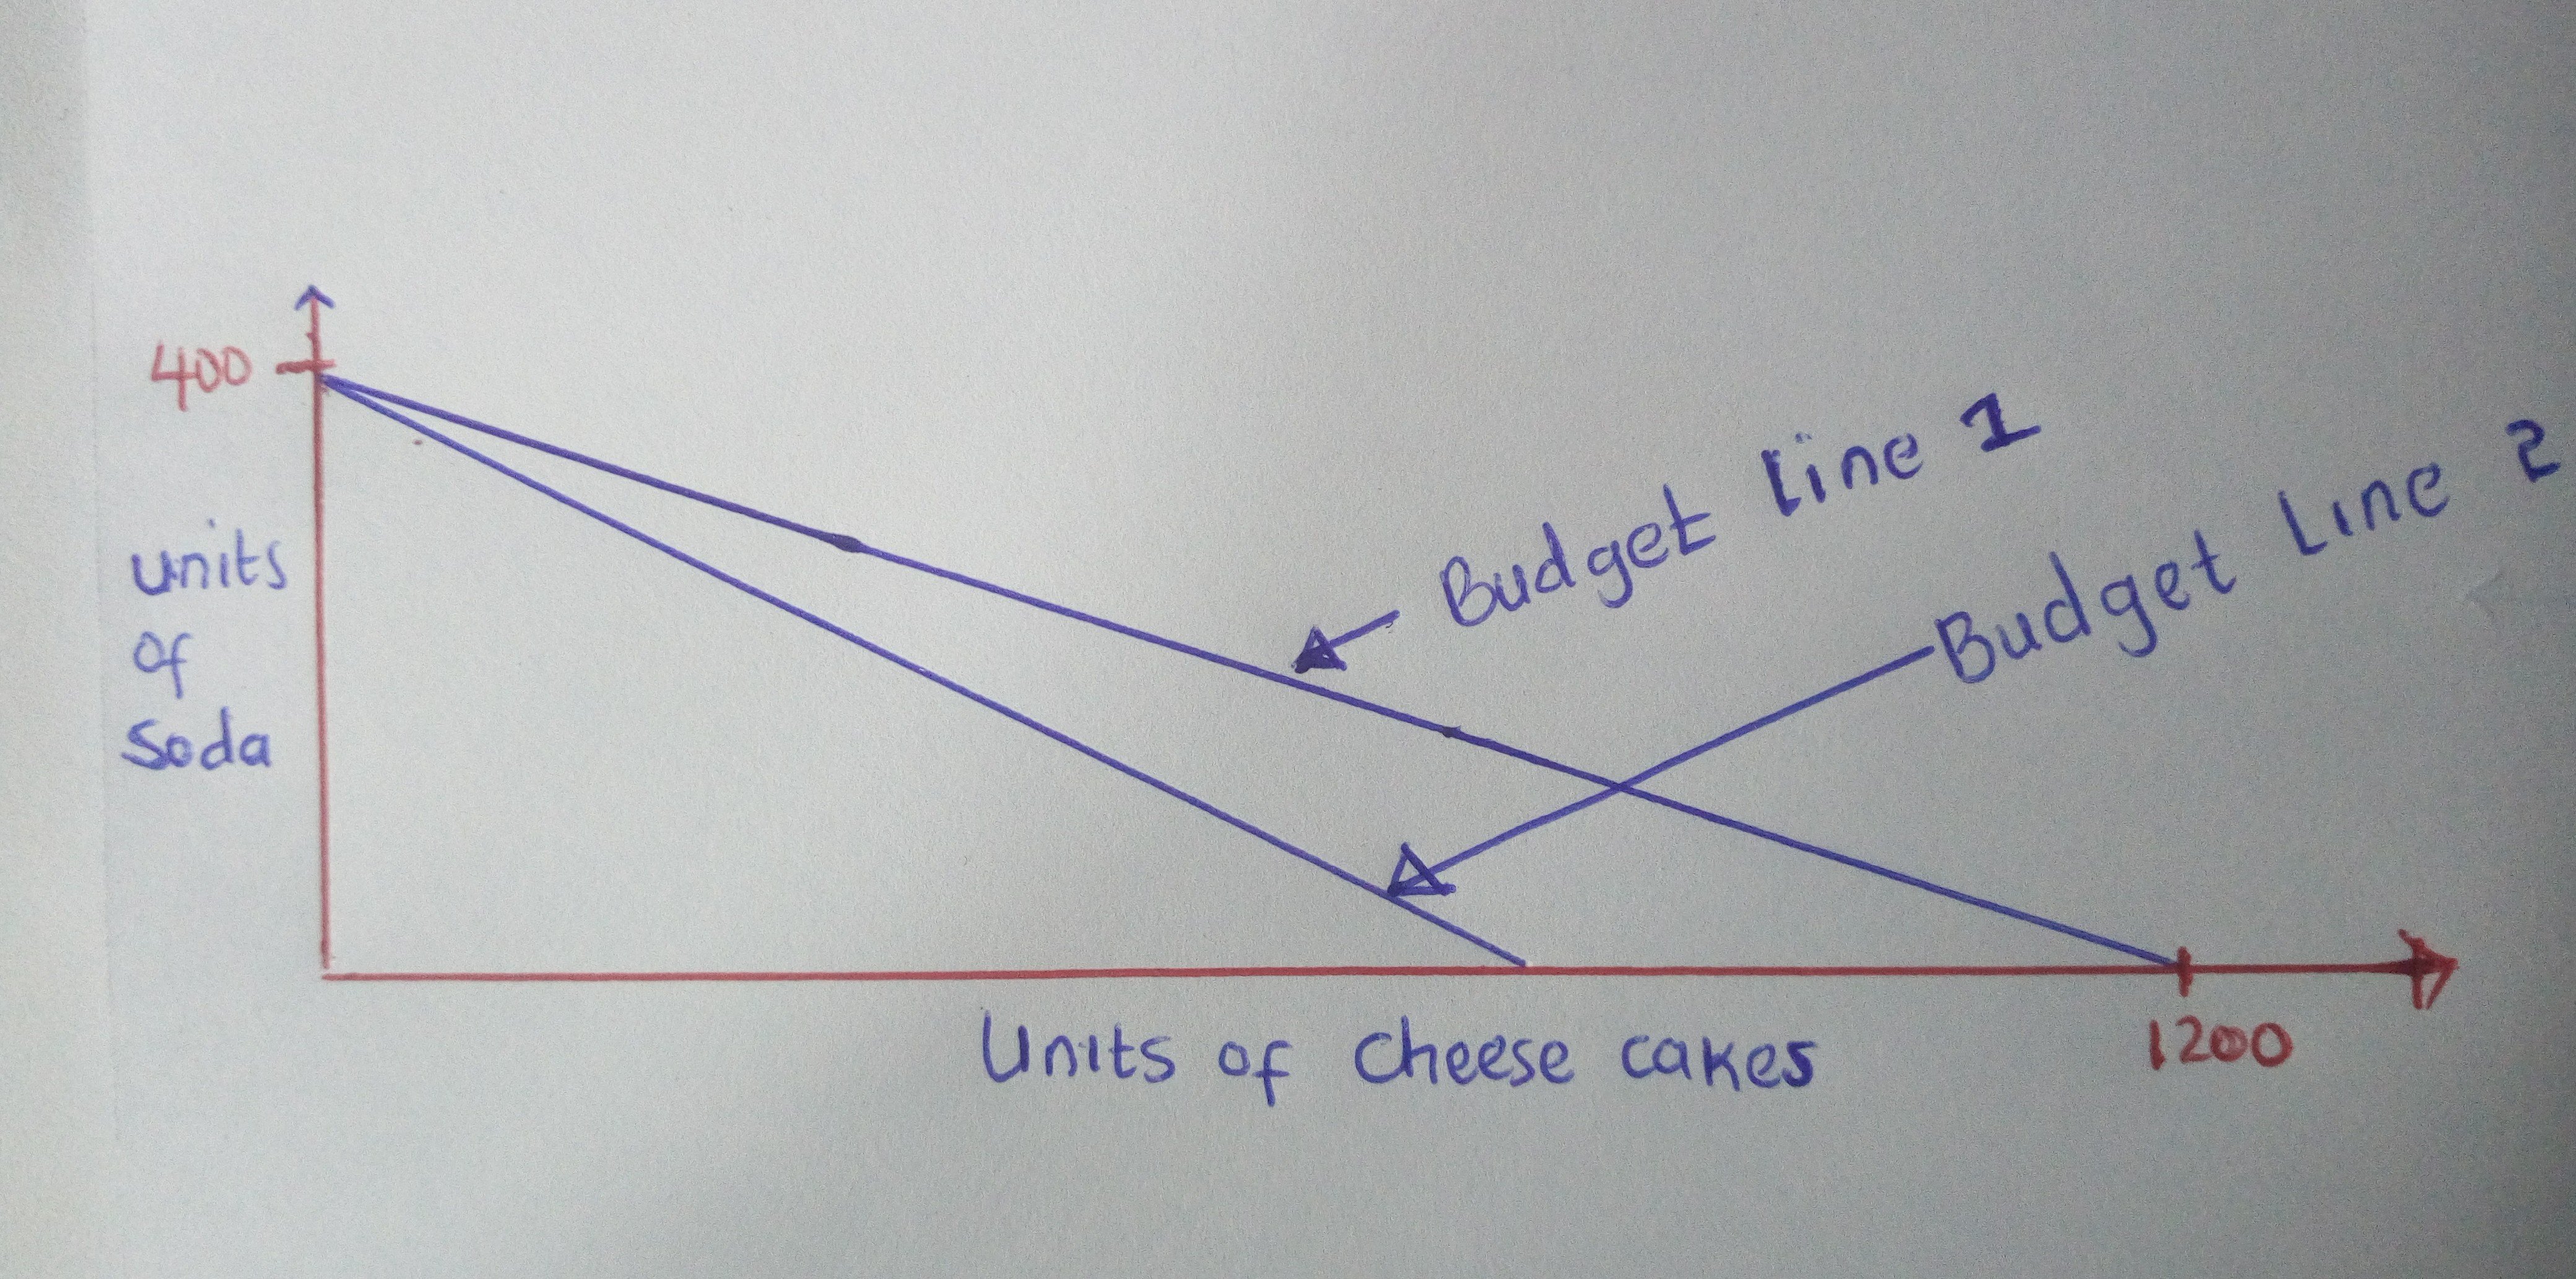 400
units
of
Soda
Budget line 1
Budget Line 2
Units of cheese cakes
1200